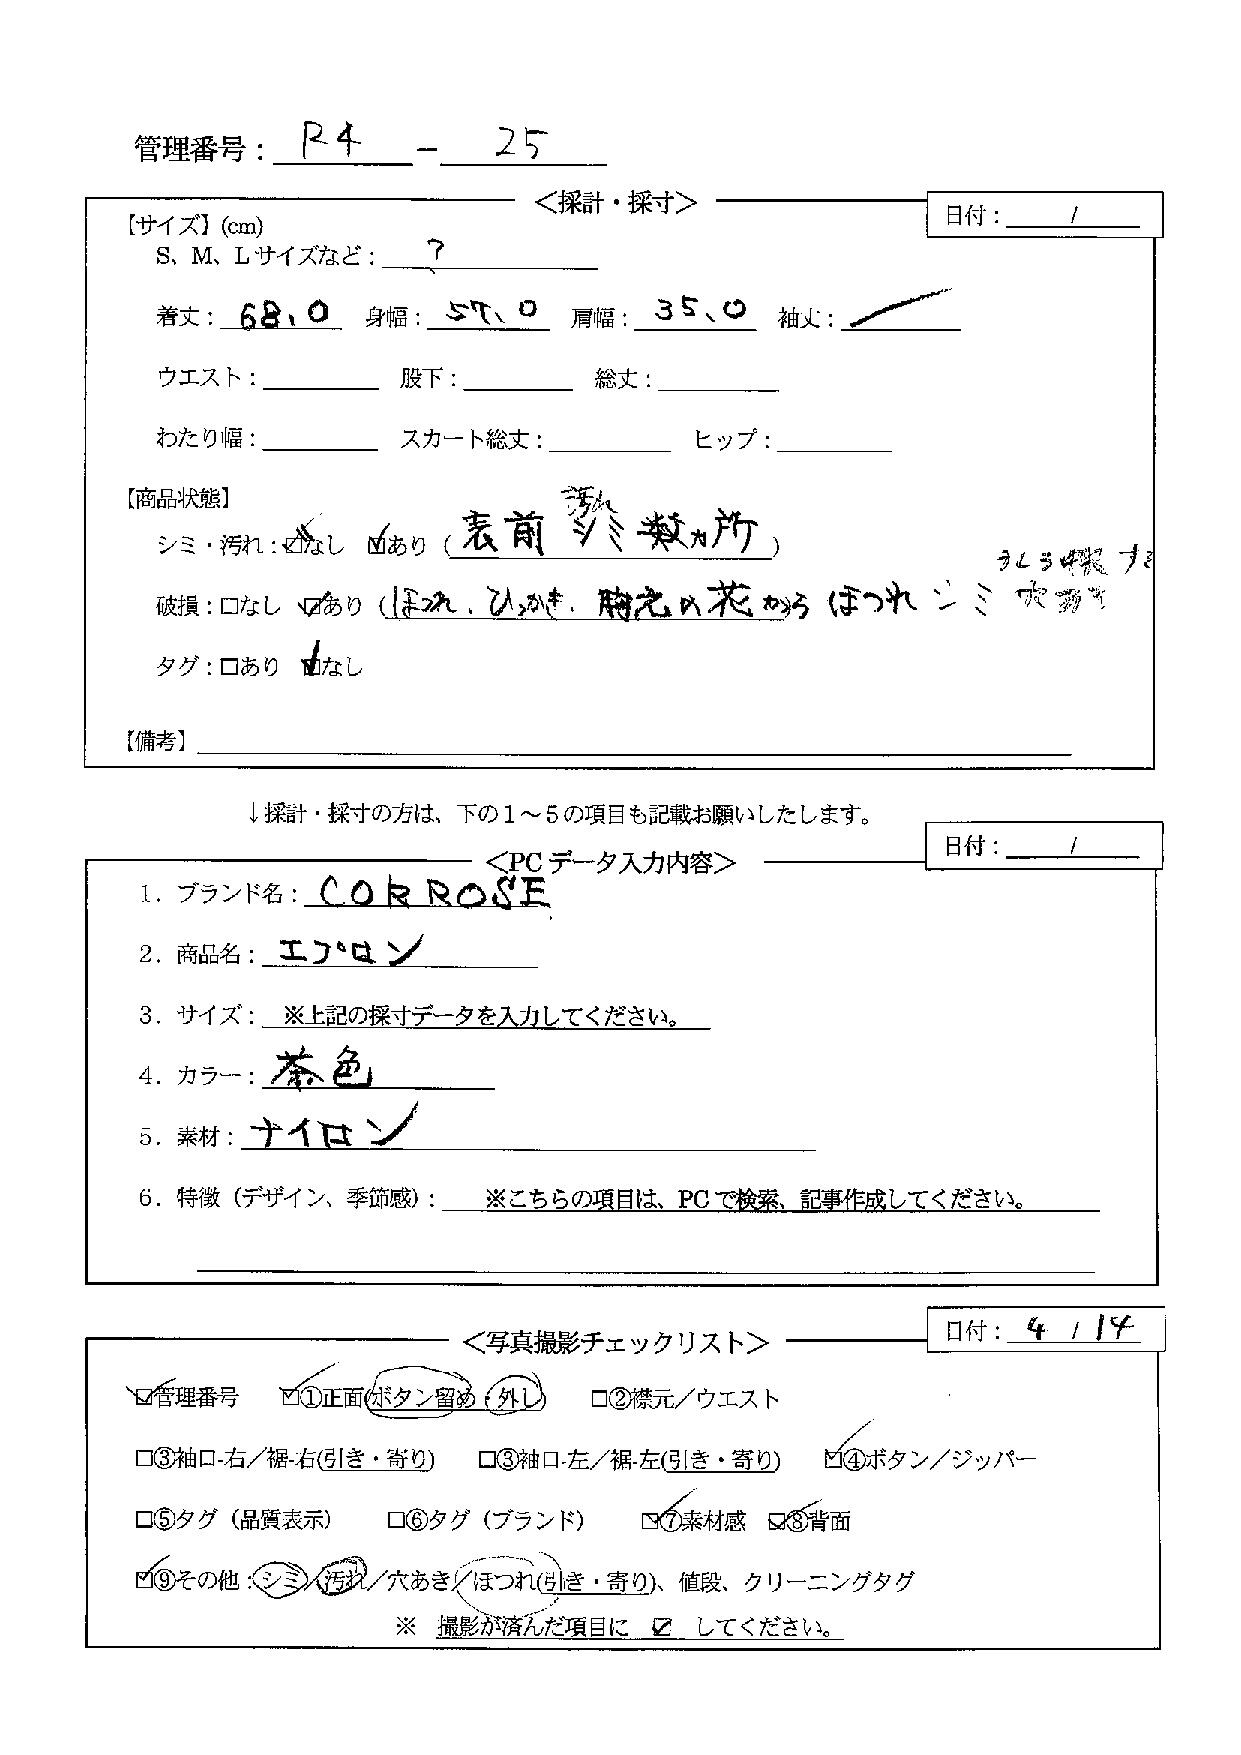 管理番号：R4 － 25
＜採計・採寸＞
日付：　/
【サイズ】(cm)
S、M、Lサイズなど：?
着丈：68.0　身幅：57.0　肩幅：35.0　袖丈：／
ウエスト：　股下：　総丈：
わたり幅：　スカート総丈：　ヒップ：
【商品状態】
汚れ
シミ・汚れ：☑なし　☑あり（表前シミ数ヵ所）
うしろ すそ
破損：□なし　☑あり（ほつれ、ひっかき、胸元の花からほつれ シミ
タグ：□あり　☑なし
【備考】
↓採計・採寸の方は、下の１～５の項目も記載お願いしたします。
日付：　/
＜PCデータ入力内容＞
1．ブランド名：CORROSE
2．商品名：エプロン
3．サイズ：※上記の採寸データを入力してください。
4．カラー：茶色
5．素材：ナイロン
6．特徴（デザイン、季節感）：※こちらの項目は、PCで検索、記事作成してください。
日付：4 / 14
＜写真撮影チェックリスト＞
☑管理番号　☑①正面(ボタン留め・外し)　□②襟元／ウエスト
□③袖口-右／裾-右(引き・寄り)　□③袖口-左／裾-左(引き・寄り)　☑④ボタン／ジッパー
□⑤タグ（品質表示）　□⑥タグ（ブランド）　☑⑦素材感　☑⑧背面
☑⑨その他：シミ／汚れ／穴あき／ほつれ(引き・寄り)、値段、クリーニングタグ
※　撮影が済んだ項目に　☑　してください。